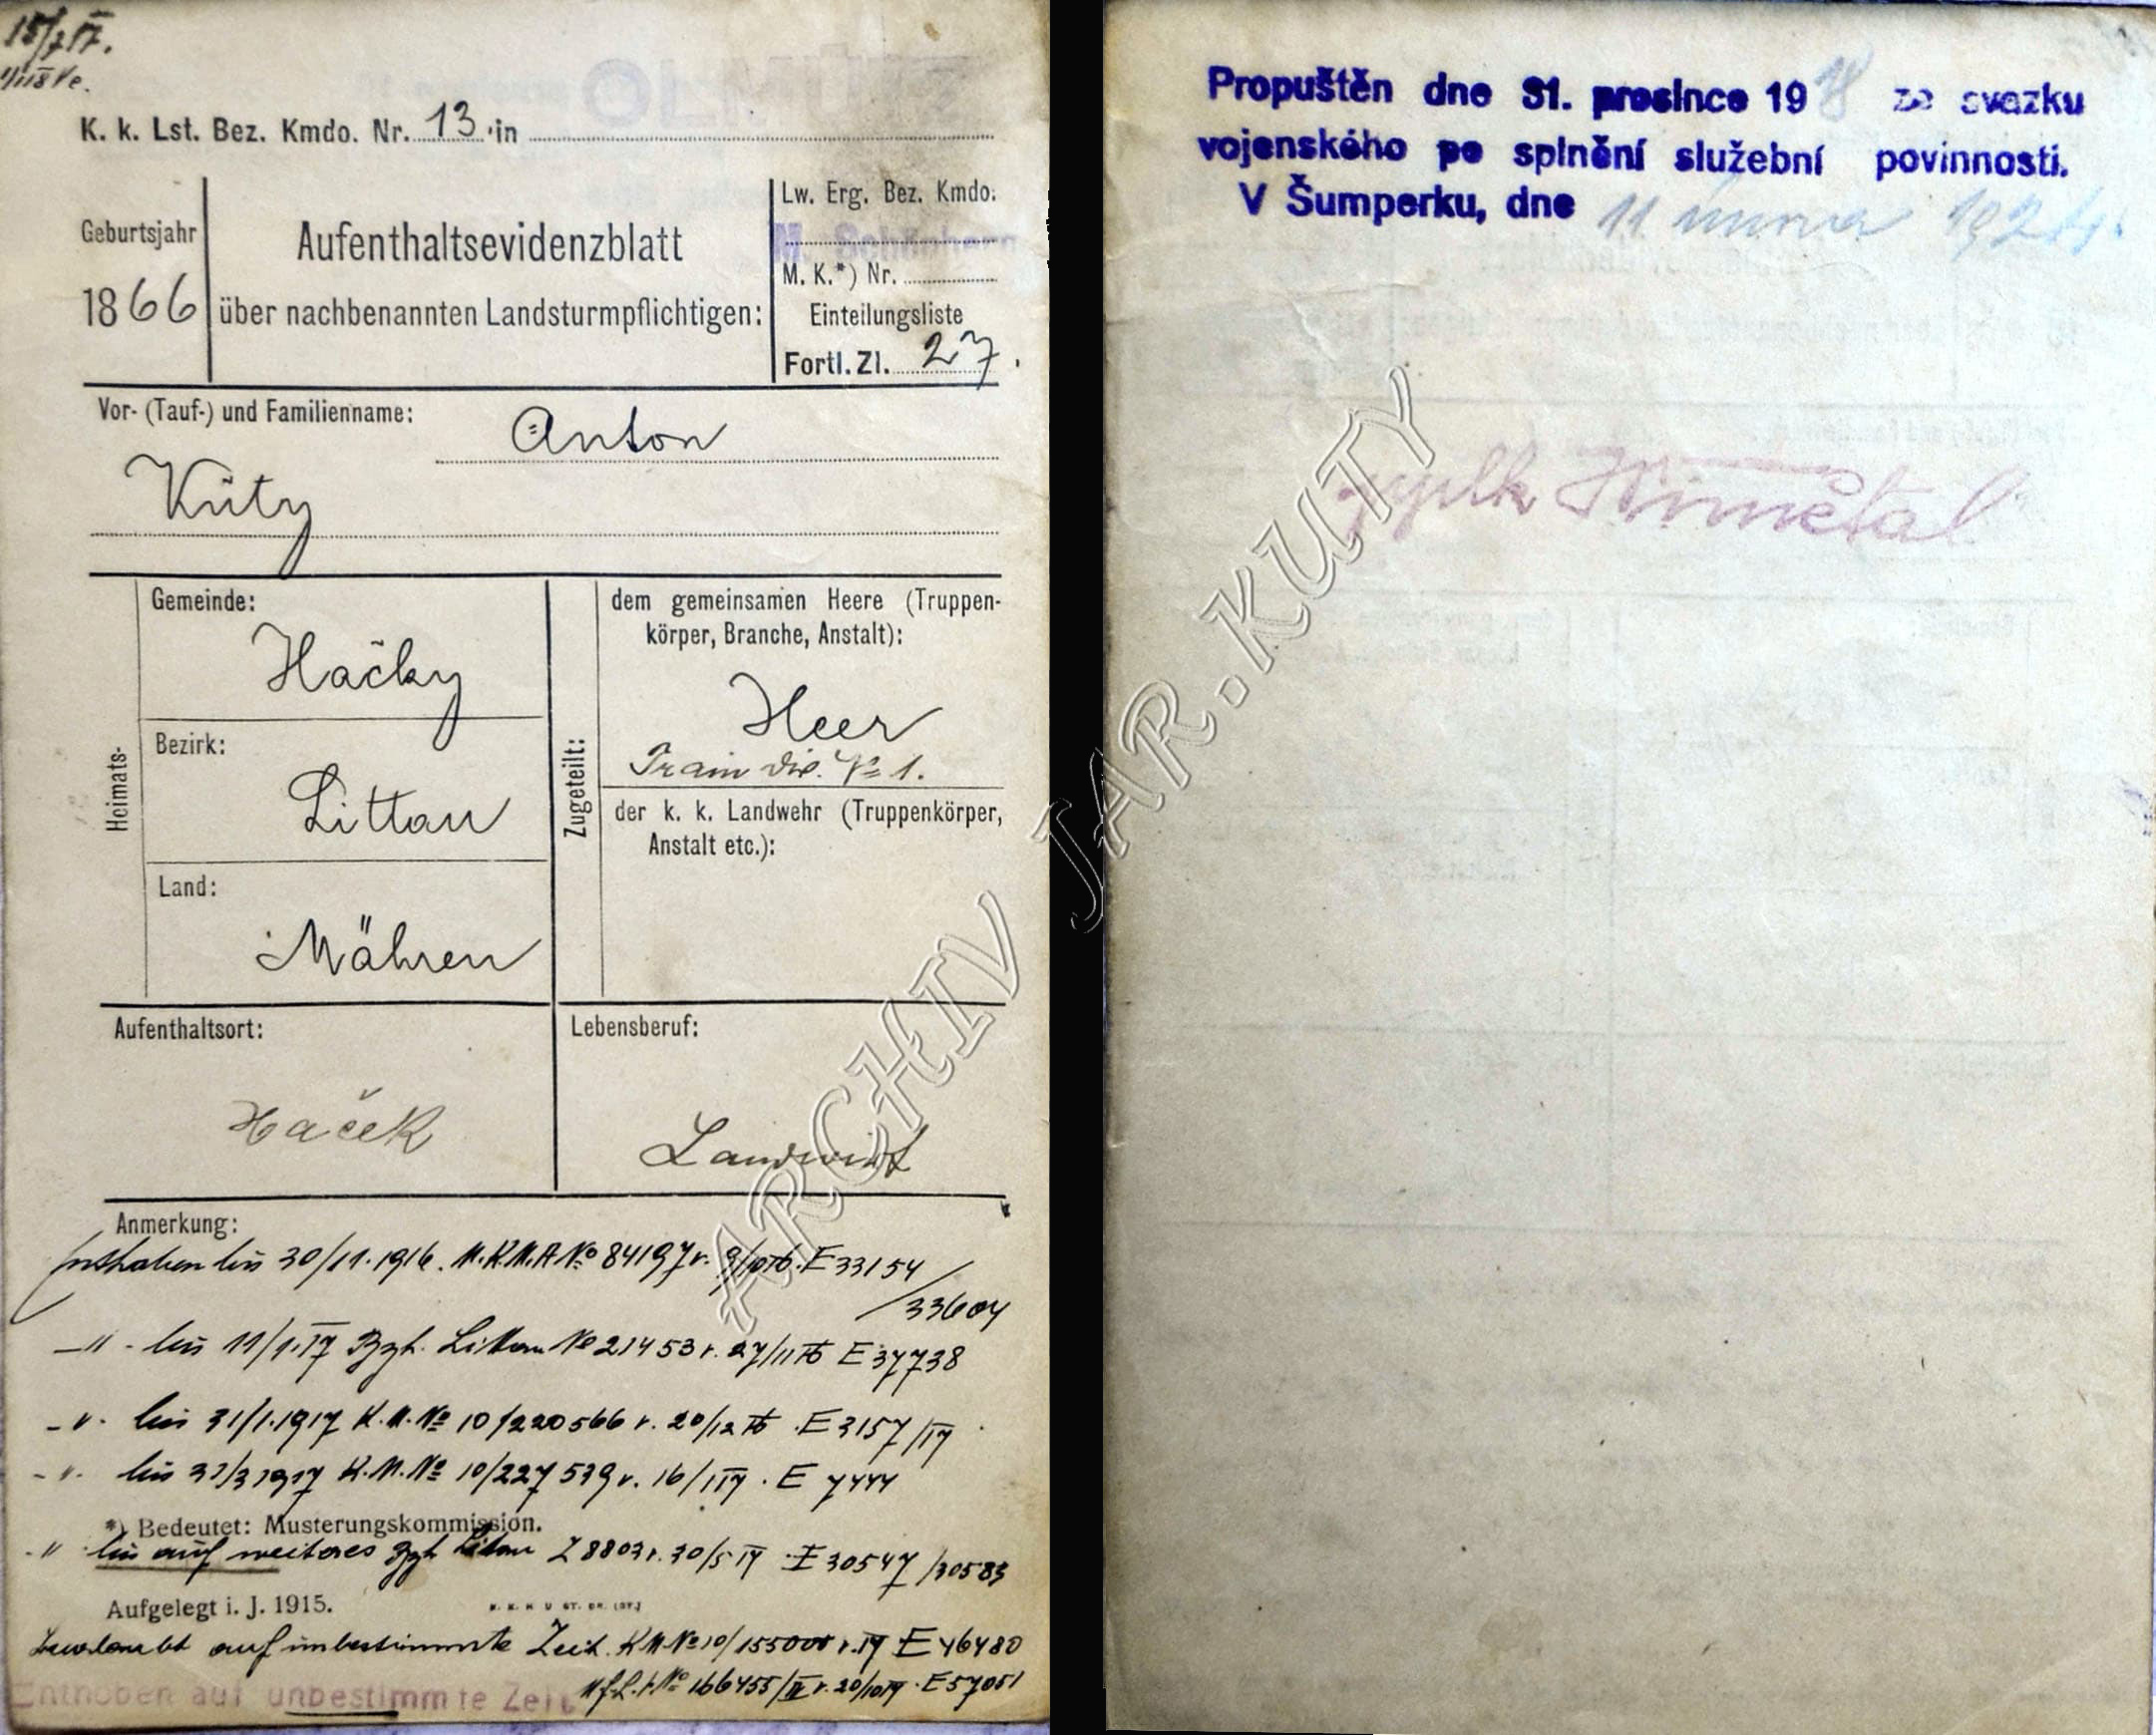 15/7 17.
K. k. Lst. Bez. Kmdo. Nr. 13 in
Geburtsjahr
1866
Aufenthaltsevidenzblatt
über nachbenannten Landsturmpflichtigen:
Lw. Erg. Bez. Kmdo.
M. Schönberg
M. K.*) Nr.
Einteilungsliste
Fortl. Zl. 27.
Vor- (Tauf-) und Familienname: Anton
Kuty
Heimats-
Gemeinde:
Hačky
Bezirk:
Littau
Land:
Mähren
Zugeteilt:
dem gemeinsamen Heere (Truppen-
körper, Branche, Anstalt):
Heer
Train Div. No 1.
der k. k. Landwehr (Truppenkörper,
Anstalt etc.):
Aufenthaltsort:
Haček
Lebensberuf:
Landwirt
Anmerkung:
Enthoben bis 30/11.1916. M.K.M.A No 84197 v. 9/10 16. E 33154
/33604
-"- bis 11/1.17 Bzh. Littau No 21453 v. 27/11 16 E 37738
-"- bis 31/1.1917 K.M. No 10/220566 v. 20/12 16 E 3157/17
-"- bis 31/3 1917 K.M. No 10/227539 v. 16/1 17. E 7444
*) Bedeutet: Musterungskommission.
-"- bis auf weiteres Bzh Littau Z 8803 v. 30/5 17 E 30547/30583
Aufgelegt i. J. 1915.
Beurlaubt auf unbestimmte Zeit. KM No 10/155000 v. 17 E 46480
M.f.L.V. No 166455/ v. 20/10 17. E 57051
Enthoben auf unbestimmte Zeit
Propuštěn dne 31. prosince 1918 ze svazku
vojenského po splnění služební povinnosti.
V Šumperku, dne 11 února 1924.
ARCHIV JAR. KUTY